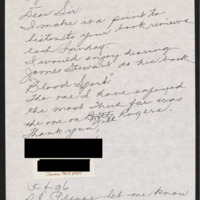 Dear Sir
I make it a point to
listen to your book reviews
each Sunday.
I would enjoy hearing
James Stewart do his book
"Blood Sport"
The one I have enjoyed
the most thus far was
the one on Will Rogers
Thank you,
5-6-96
P.S. Please let me know